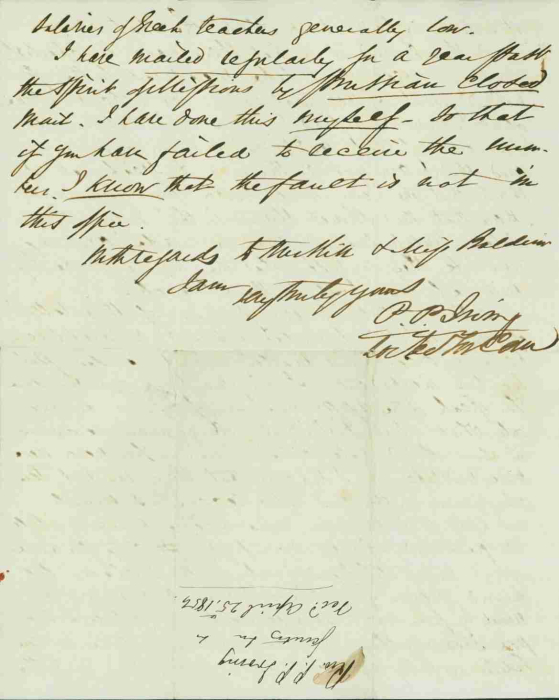 salaries of Greek teachers generally low.
I have mailed regularly for a year past
the Spirit of Missions by Prussian Closed
Mail. I have done this myself - so that
if you have failed to receive the num-
bers. I know that the fault is not in
this office.
With regards to Mrs Hill & Miss Baldwin
I am very truly yours
P. P. Irving
Sec
Rev. P. P. Irving
Rec.d April 25. 1853